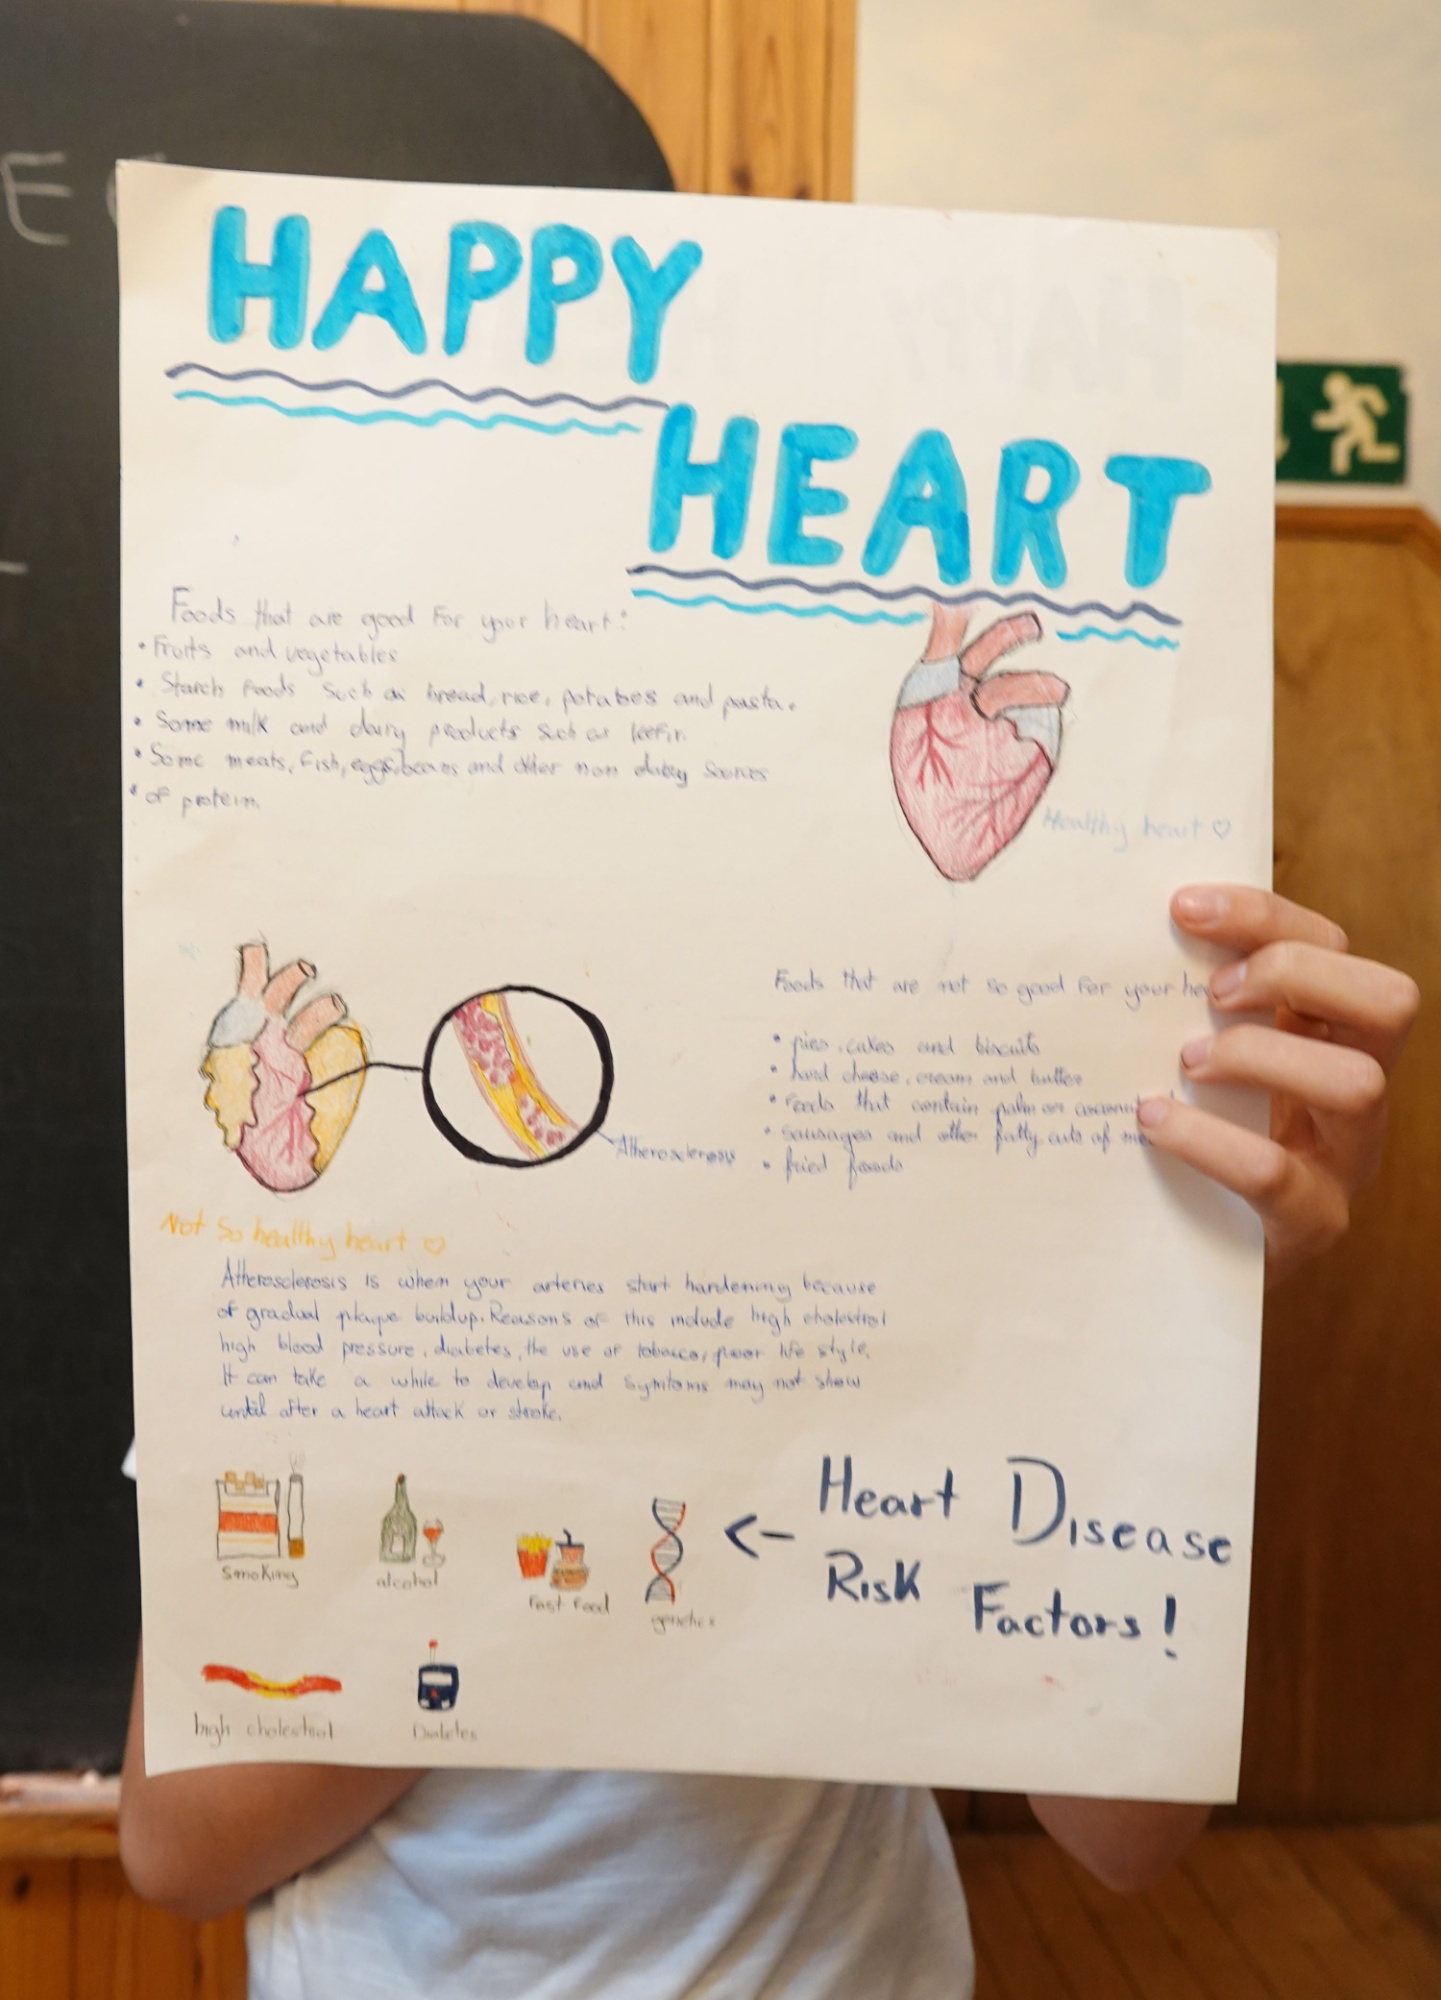 HAPPY
HEART
Foods that are good for your heart:
• Fruits and vegetables
• Starch foods such as bread, rice, potatoes and pasta.
• Some milk and dairy products such as kefir.
• Some meats, fish, eggs, beans and other non dairy sources
• of protein.
Healthy heart ♡
Foods that are not so good for your
• pies, cakes and biscuits
• hard cheese, cream and butter
• foods that contain palm or coconut
• sausages and other fatty cuts of
• fried foods
Atherosclerosis
Not so healthy heart ♡
Atherosclerosis is when your arteries start hardening because
of gradual plaque buildup. Reasons of this include high cholestrol
high blood pressure, diabetes, the use of tobacco, poor life style.
It can take a while to develop and symtoms may not show
until after a heart attack or stroke.
Heart Disease
Risk Factors!
<-
smoking
alcohol
fast food
genetics
high cholestrol
Diabetes
E